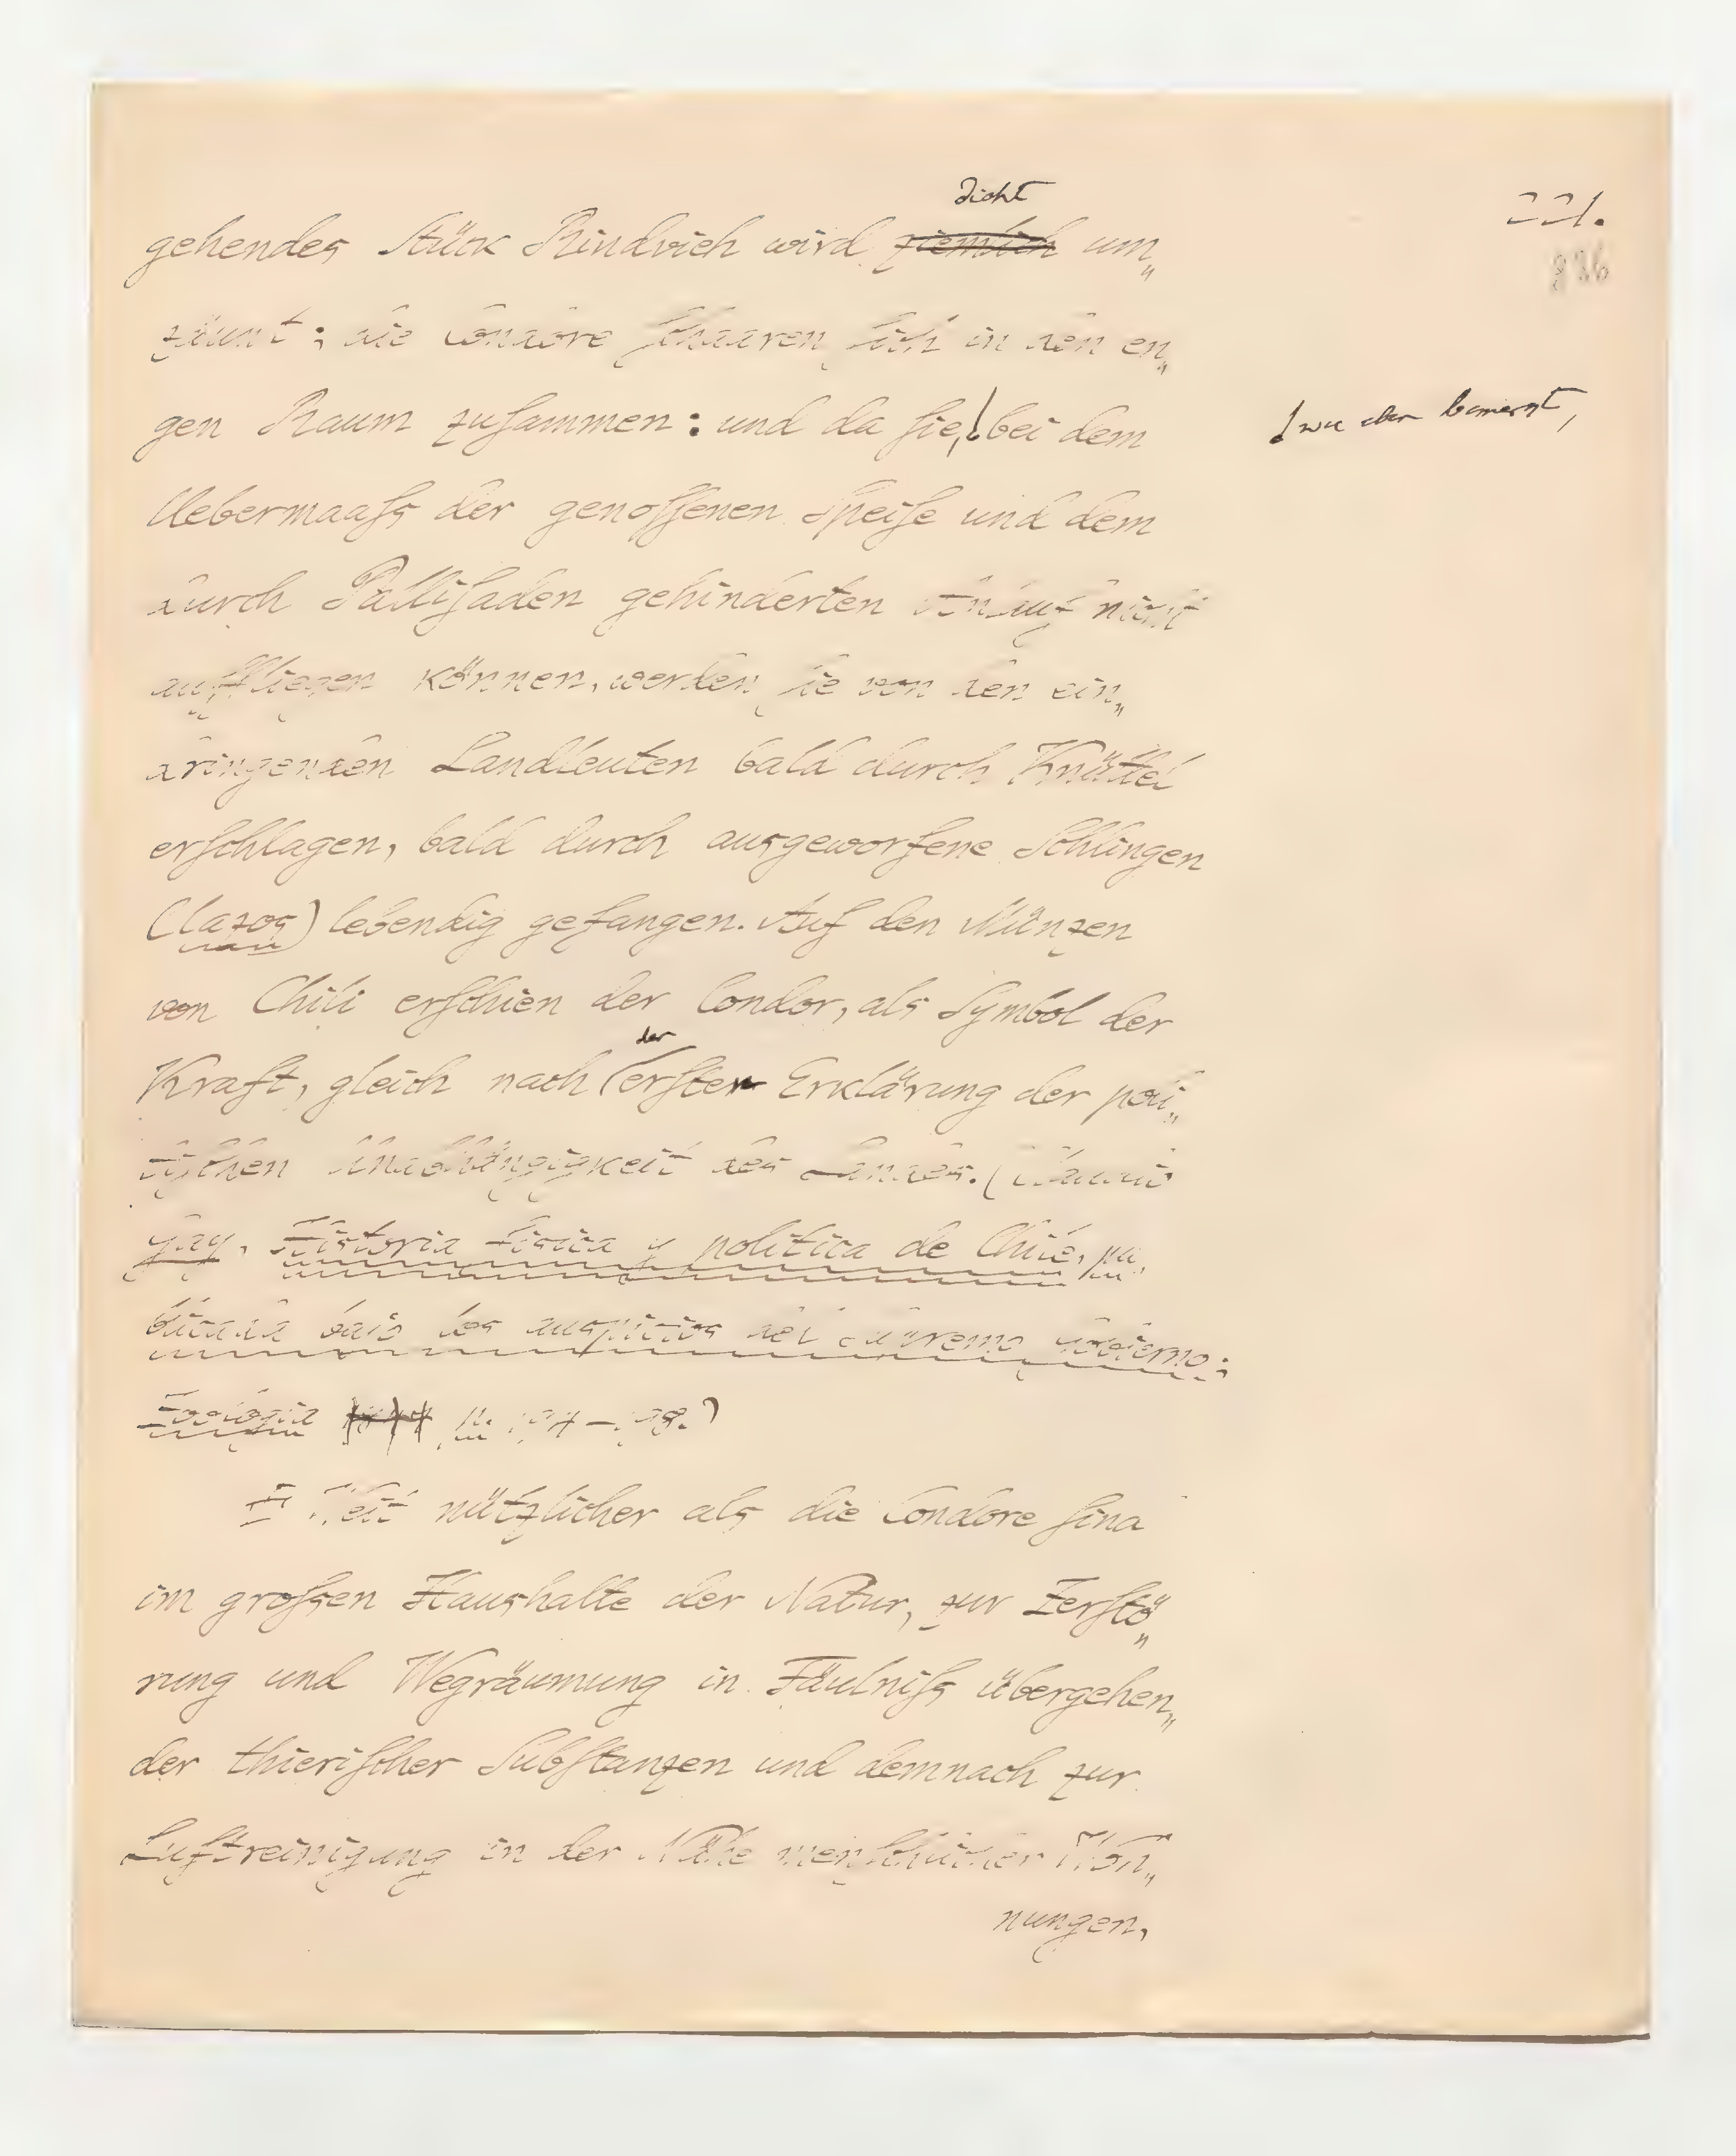 221.
826
dicht
gehendes Stück Rindvieh wird ziemlich um„
zäunt: die Condore schaaren sich in den en„
gen Raum zusammen: und da sie, bei dem
wie eben bemerkt,
Uebermaaſs der genoſſenen Speiſe und dem
durch Palliſaden gehinderten Anlauf nicht
auffliegen können, werden ſie von den ein„
dringenden Landleuten bald durch Knüttel
erſchlagen, bald durch ausgeworfene Schlingen
(lazos) lebendig gefangen. Auf den Münzen
von Chili erſchien der Condor, als Symbol der
der
Kraft, gleich nach erſten Erklärung der poli„
tiſchen Unabhängigkeit des Landes. (Claudio
Gay, Historia fisica y politica de Chile, pu„
blicada bajo los auspicios del Supremo Gobierno;
Zoologia p. 194–198.)
Weit nützlicher als die Condore ſind
im groſsen Haushalte der Natur, zur Zerſtö„
rung und Wegräumung in Fäulniſs übergehen„
der thieriſcher Subſtanzen und demnach zur
Luftreinigung in der Nähe menſchlicher Woh„
nungen,